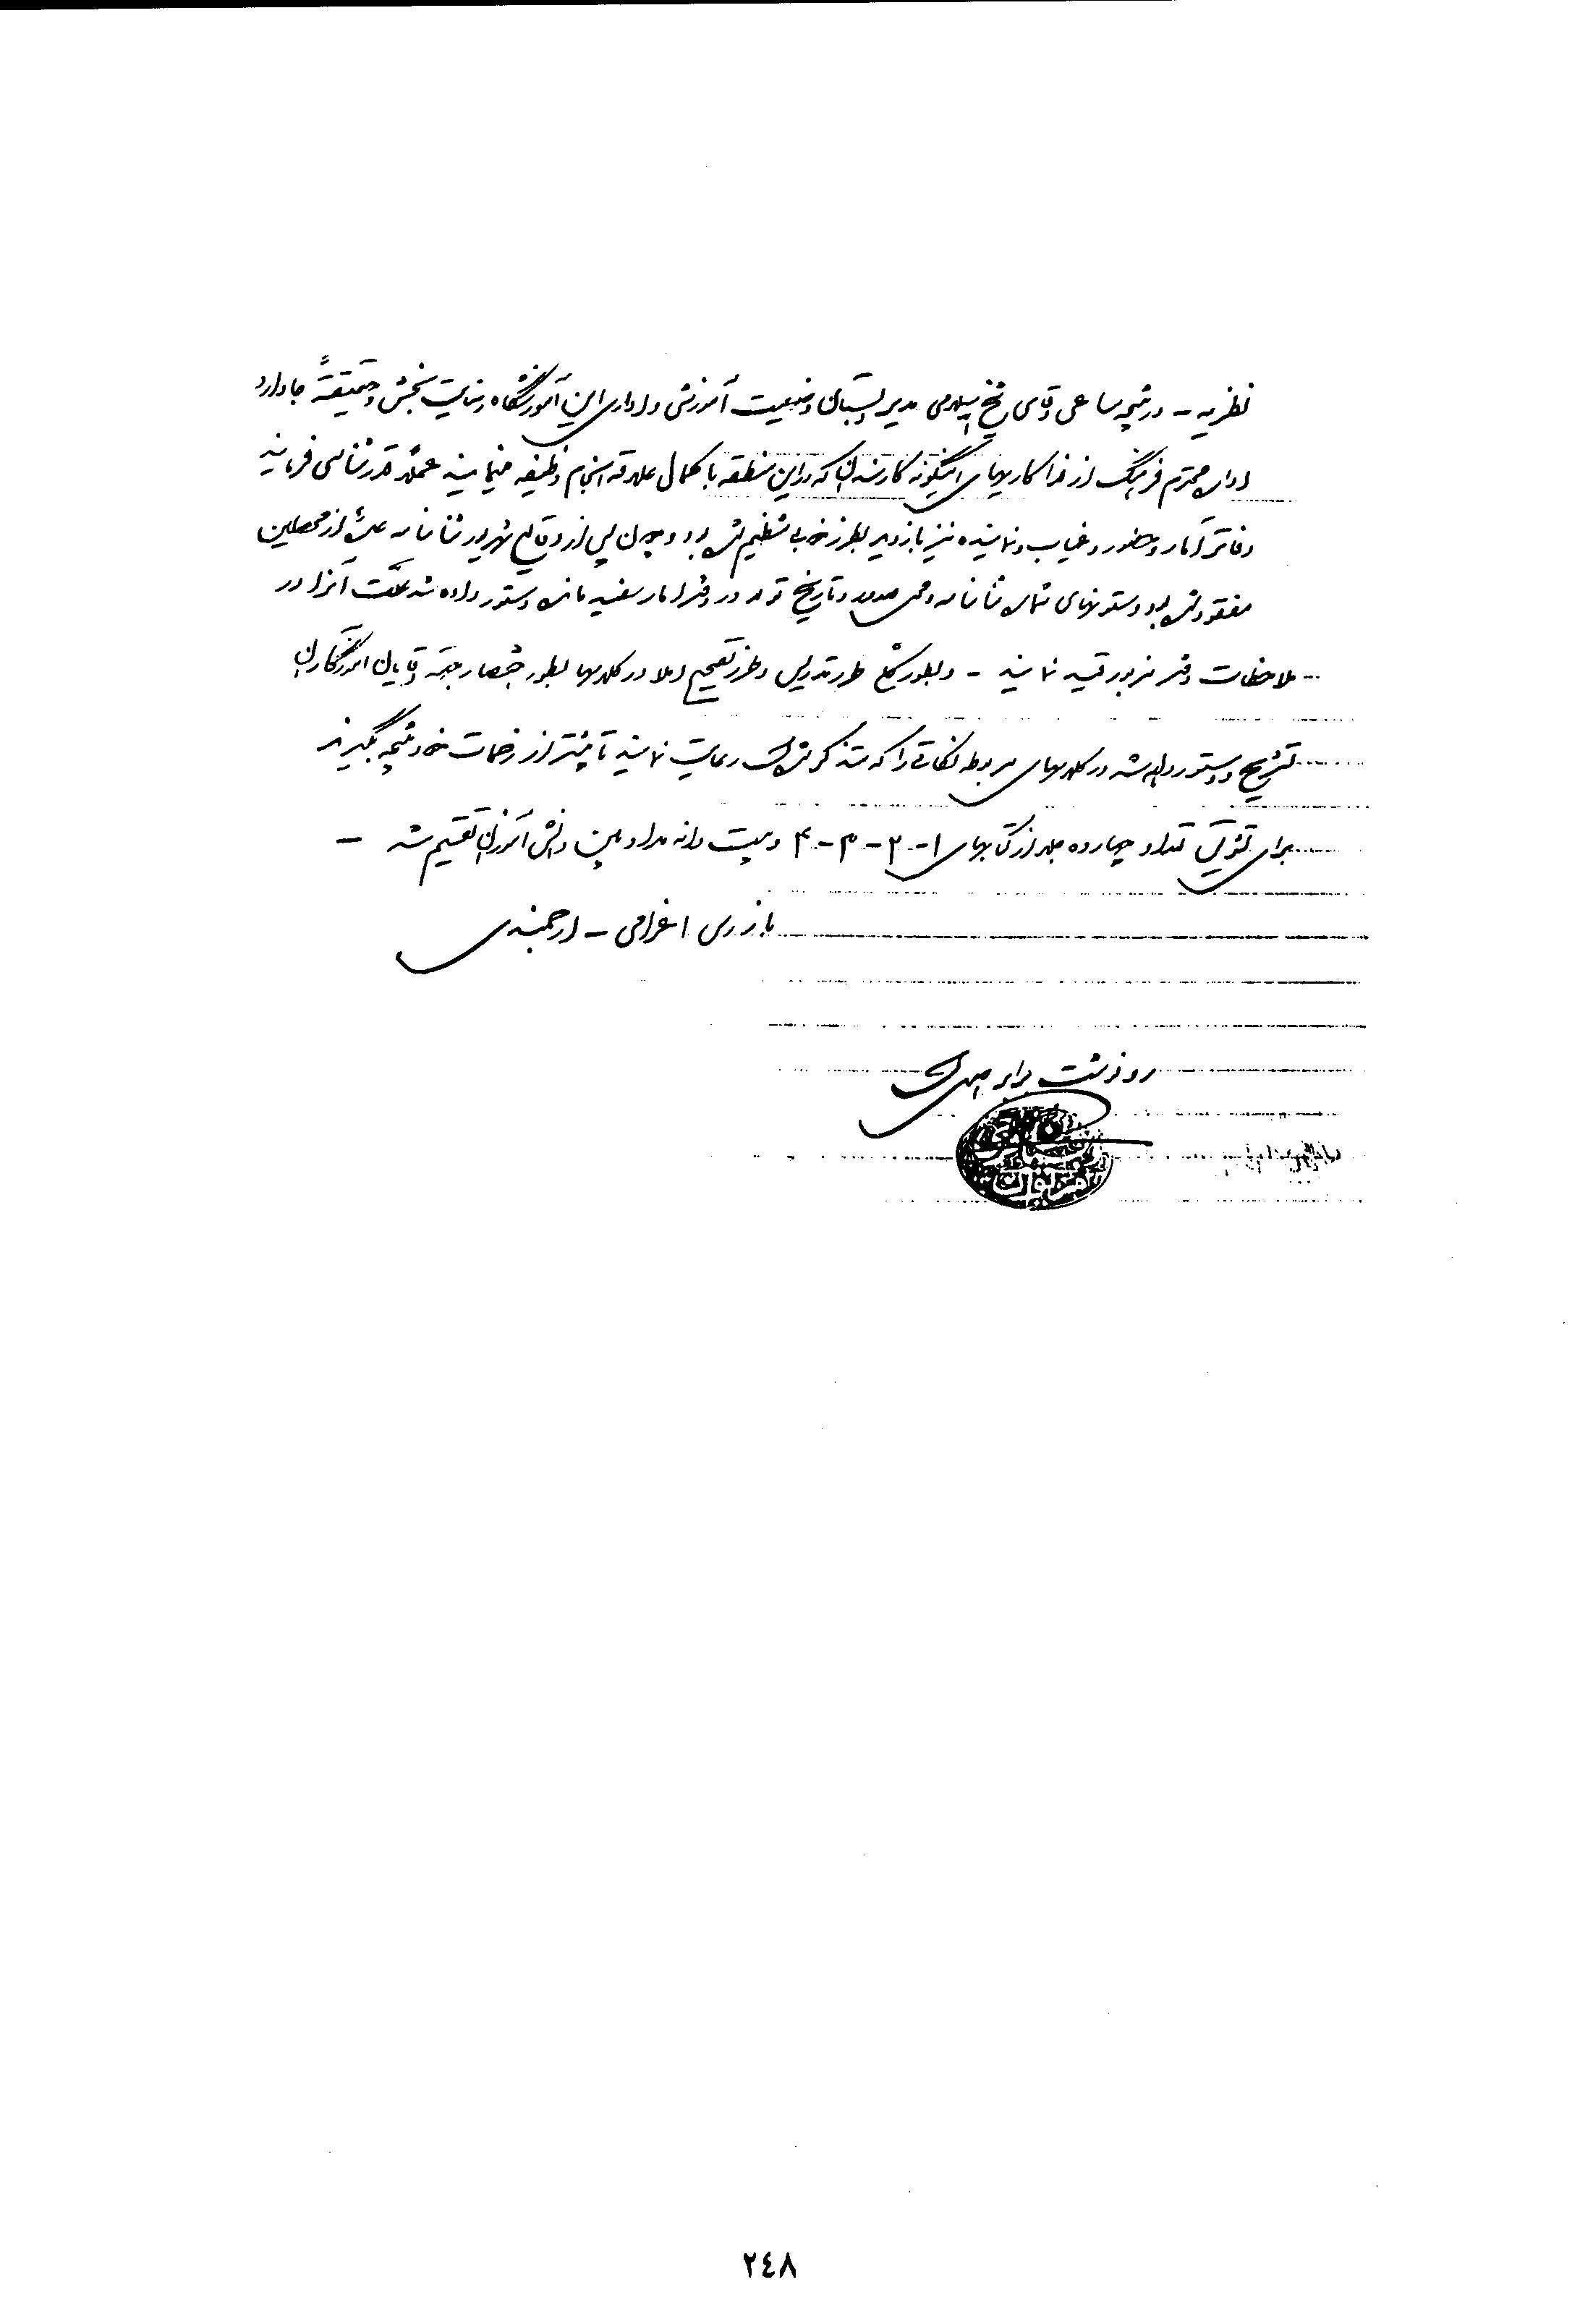 نظریه – در نتیجه مساعی آقای شیخ الاسلامی مدیر دبستان وضعیت آموزشی و اداری این آموزشگاه رضایت بخش و حقیقةً جا دارد
اداره محترم فرهنگ از فداکاریهای اینگونه کارمندان که در این منطقه با کمال علاقه انجام وظیفه مینمایند عملاً قدرشناسی فرمایند
دفاتر آمار و حضور و غیاب و نماینده نیز بازدید بطرز خوبی تنظیم شده بود و چون پس از وقایع شهریور شناسنامه عده از محصلین
مفقود شده بود و ستونهای شماره شناسنامه و محل صدور و تاریخ تولد در دفتر آمار سفید مانده دستور داده شد علت آنرا در
ملاحظات دفتر مزبور قید نمایند – و بطور کلی طرز تدریس و طرز تصحیح املا در کلاسها بطور اختصار جهة آقایان آموزگاران
تشریح و دستور داده شد در کلاسهای مربوطه نکاتی را که متذکر شده است رعایت نمایند تا بیشتر از زحمات خود نتیجه بگیرند
برای تشویق تعداد چهارده جلد از کتابهای ۱-۲-۳-۴ و بیست دانه مداد بین دانش آموزان تقسیم شد –
بازرس اعزامی – ارجمندی
رونوشت برابر اصل است
٢٤٨